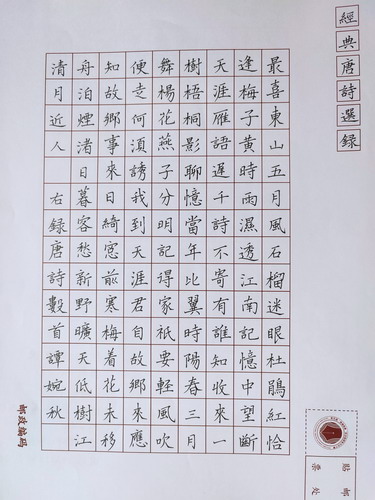 經典唐詩選錄
最喜東山五月風石榴迷眼杜鵑紅恰
逢梅子黄時雨濕透江南記憶中望斷
天涯雁語遲千詩不寄有誰知收來一
樹梧桐影聊憶當年比翼時陽春三月
舞楊花燕子分明記得家祇要輕風吹
便走何須誘我到天涯君自故鄉來應
知故鄉事來日綺窓前寒梅着花未移
舟泊煙渚日暮客愁新野曠天低樹江
清月近人 右録唐詩數首譚婉秋
郵政編碼
貼郵
票處